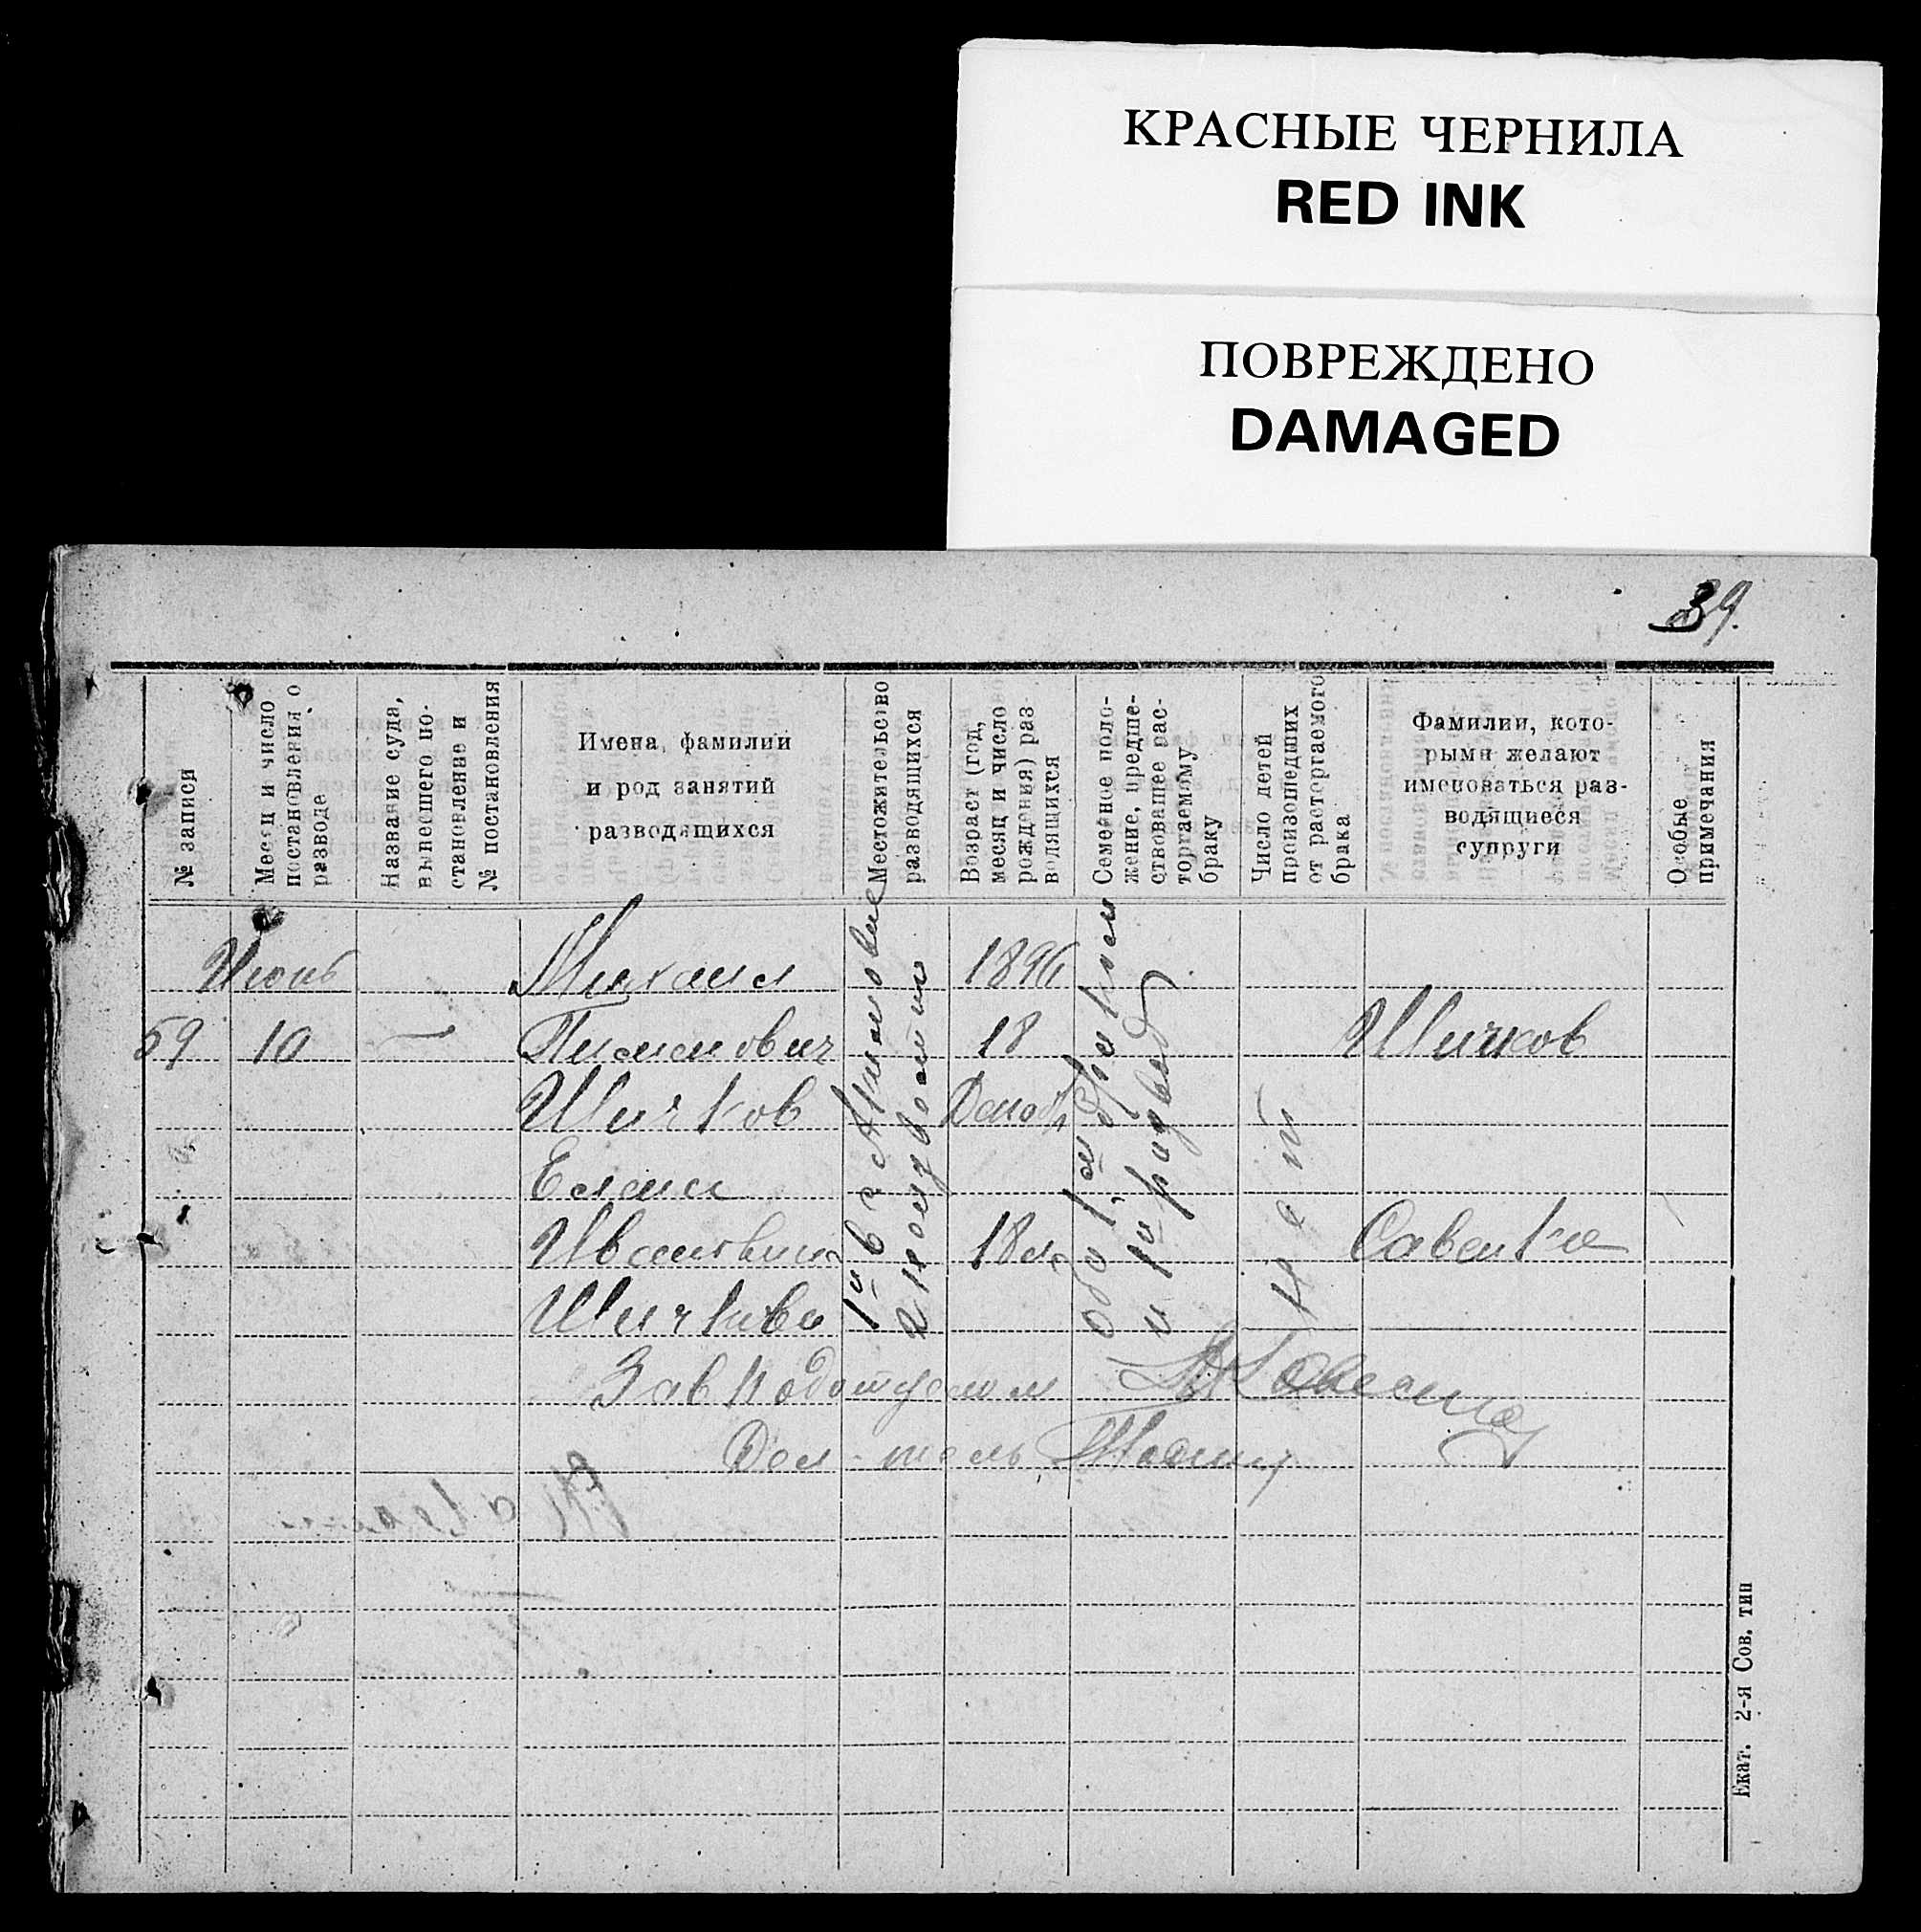 КРАСНЫЕ ЧЕРНИЛА
RED INK
ПОВРЕЖДЕНО
DAMAGED
39.
№ записи
Месяц и число
постановления о
разводе
Название суда,
вынесшего по-
становление и
№ постановления
Имена, фамилии
и род занятий
разводящихся
Местожительство
разводящихся
Возраст (год,
месяц и число
рождения) раз-
водящихся
Семейное поло-
жение, предше-
ствовавшее рас-
торгаемому
браку
Число детей
происшедших
от расторгаемого
брака
Фамилии, кото-
рыми желают
именоваться раз-
водящиеся
супруги
Особые
примечания
Июнь
59
10
—
Михаил
Пименович
Шичков
Елена
Ивановна
Шичкова
1й в с
2й
1896
18
Декабр
18 лет
оба 1м браком
и 1й развод
Нет
Шичков
Завподотделом
Дел-тель
Екат. 2-я Сов. тип